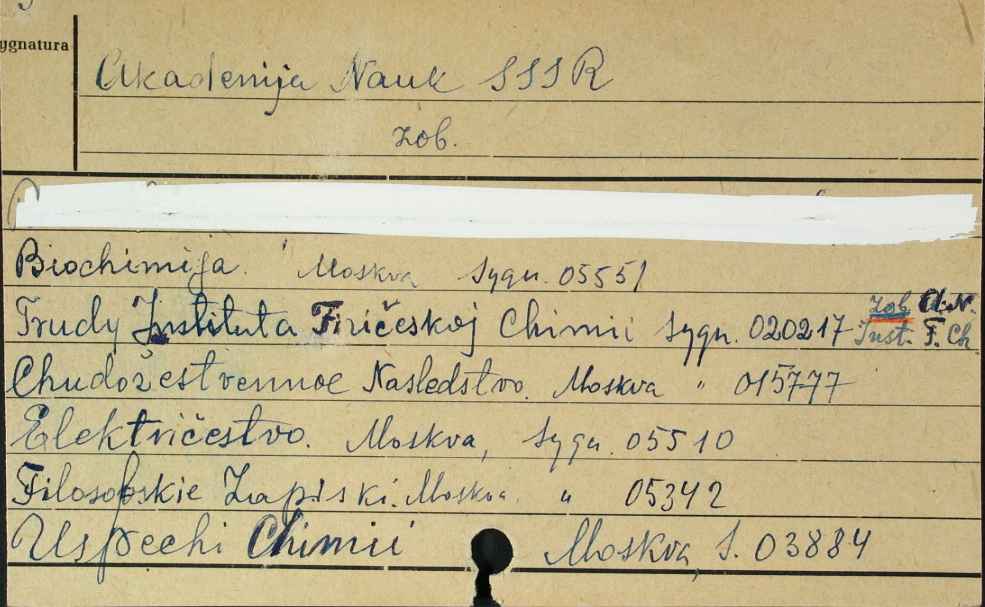 ygnatura
Akademija Nauk SSSR
zob.
Biochimija. Moskva Sygn. 05551
Trudy Instituta Fizičeskoj Chimii Sygn. 020217 zob. A.N.
Inst. F. Ch
Chudožestvennoe Nasledstvo. Moskva " 015777
Električestvo. Moskva, Sygn. 05510
Filosofskie Zapiski. Moskva. " 05342
Uspechi Chimii Moskva, S. 03884